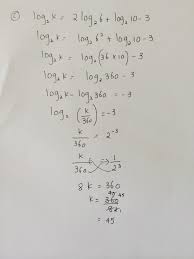 c) log₂ k = 2 log₂ 6 + log₂ 10 - 3
log₂ k = log₂ 6² + log₂ 10 - 3
log₂ k = log₂ (36 × 10) - 3
log₂ k = log₂ 360 - 3
log₂ k - log₂ 360 = -3
log₂ (k/360) = -3
k/360 = 2⁻³
k/360 = 1/2³
8k = 360
k = 360/8
= 45